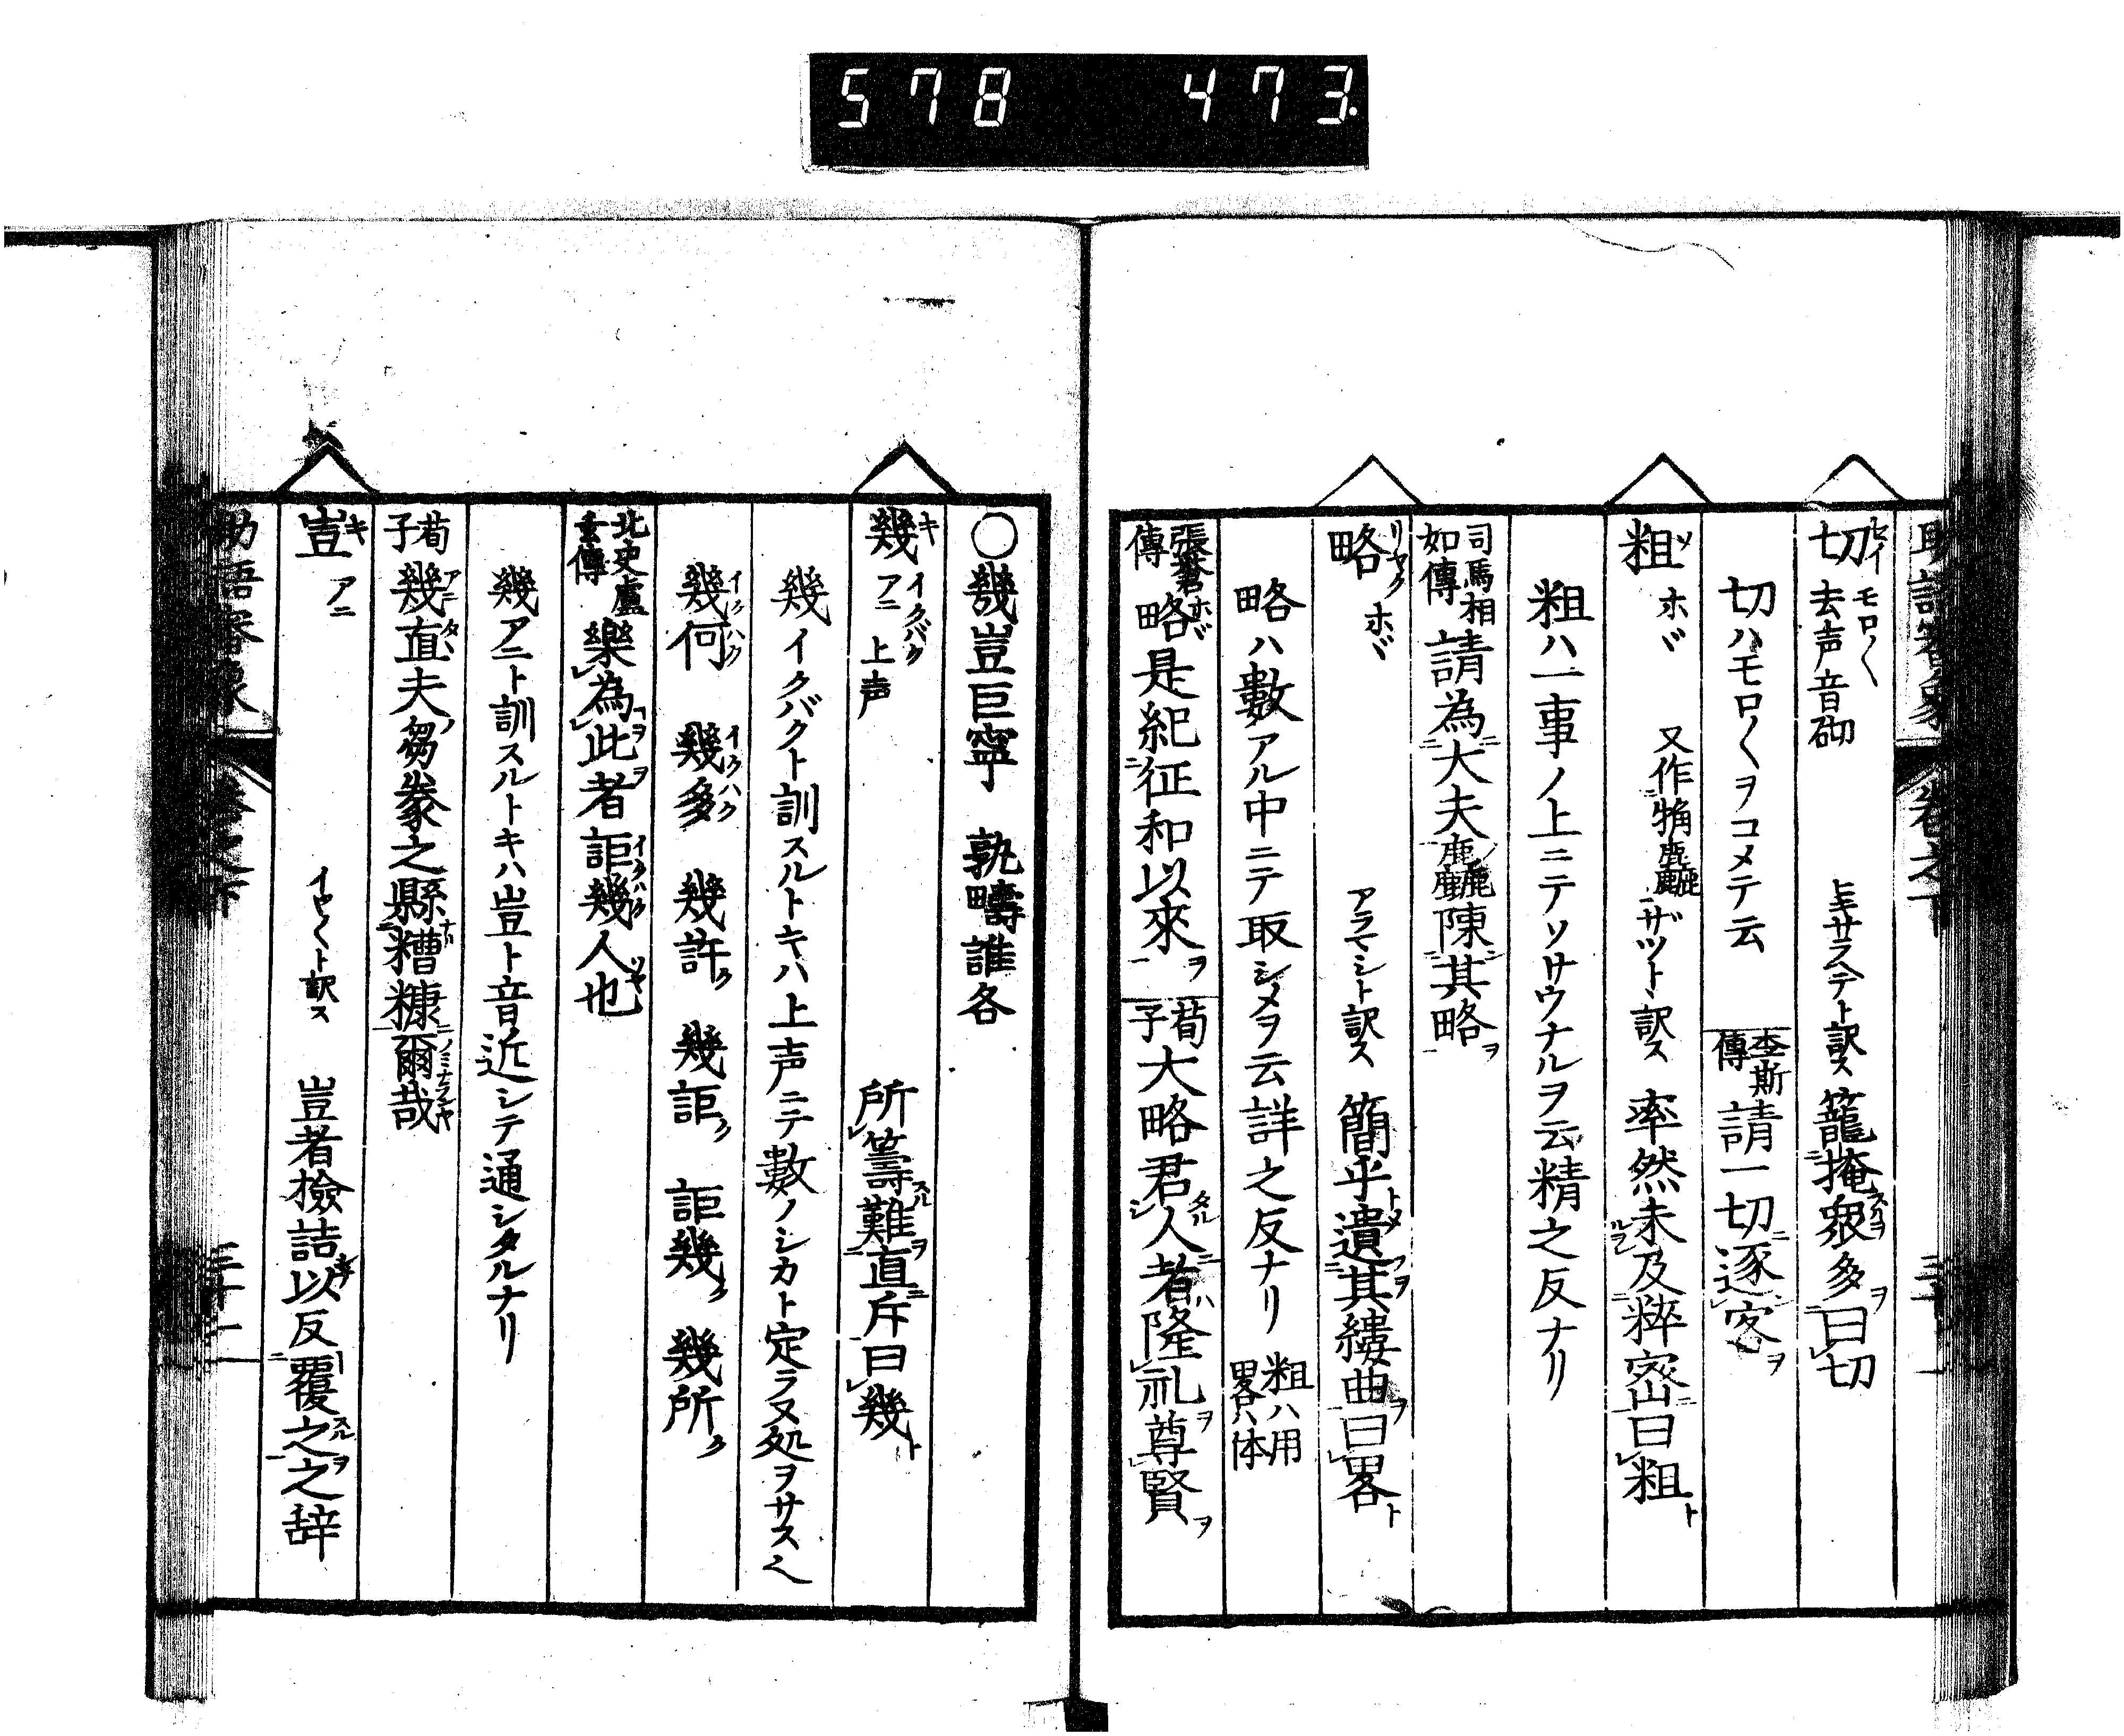 578 473.
切 セイ モロ〱 去声音砌 ヒキサラヘテト訳ス 籠掩衆多曰切
切ハモロ〱ヲコメテ云 李斯傳 請一切逐客
粗 ソ ホヾ 又作觕麤 ザツト訳ス 率然未及粹密曰粗
粗ハ一事ノ上ニテソサウナルヲ云精之反ナリ
司馬相如傳 請為大夫麤陳其略
略 リヤク ホヾ アラマシト訳ス 簡乎遺其縷曲曰畧
略ハ數アル中ニテ取シメヲ云詳之反ナリ 粗ハ用畧ハ体
張蒼傳 略是紀征和以來 荀子 大略君人者隆礼尊賢
○幾豈巨寧 孰疇誰各
幾 キ イクバク アニ 上声 所籌難直斥曰幾
幾イクバクト訓スルトキハ上声ニテ數ノシカト定ラヌ処ヲサス也
幾何 幾多 幾許 幾詎 詎幾 幾所
北史盧玄傳 樂為此者詎幾人也
幾アニト訓スルトキハ豈ト音近シテ通シタルナリ
荀子 幾直夫芻豢之縣糟糠爾哉
豈 キ アニ イヤ〱ト訳ス 豈者檢詰以反覆之之辞
助語審象 卷之下 三十一